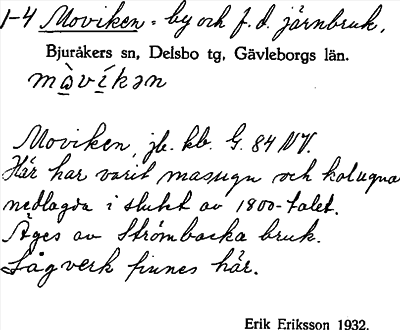 1-4 Moviken = by och f. d. järnbruk,
Bjuråkers sn, Delsbo tg, Gävleborgs län.
mὼvíkən
Moviken, jb. kb. G. 84 NV.
Här har varit masugn och kolugna
nedlagda i slutet av 1800-talet.
Äges av Strömbacka bruk.
Sågverk finnes här.
Erik Eriksson 1932.